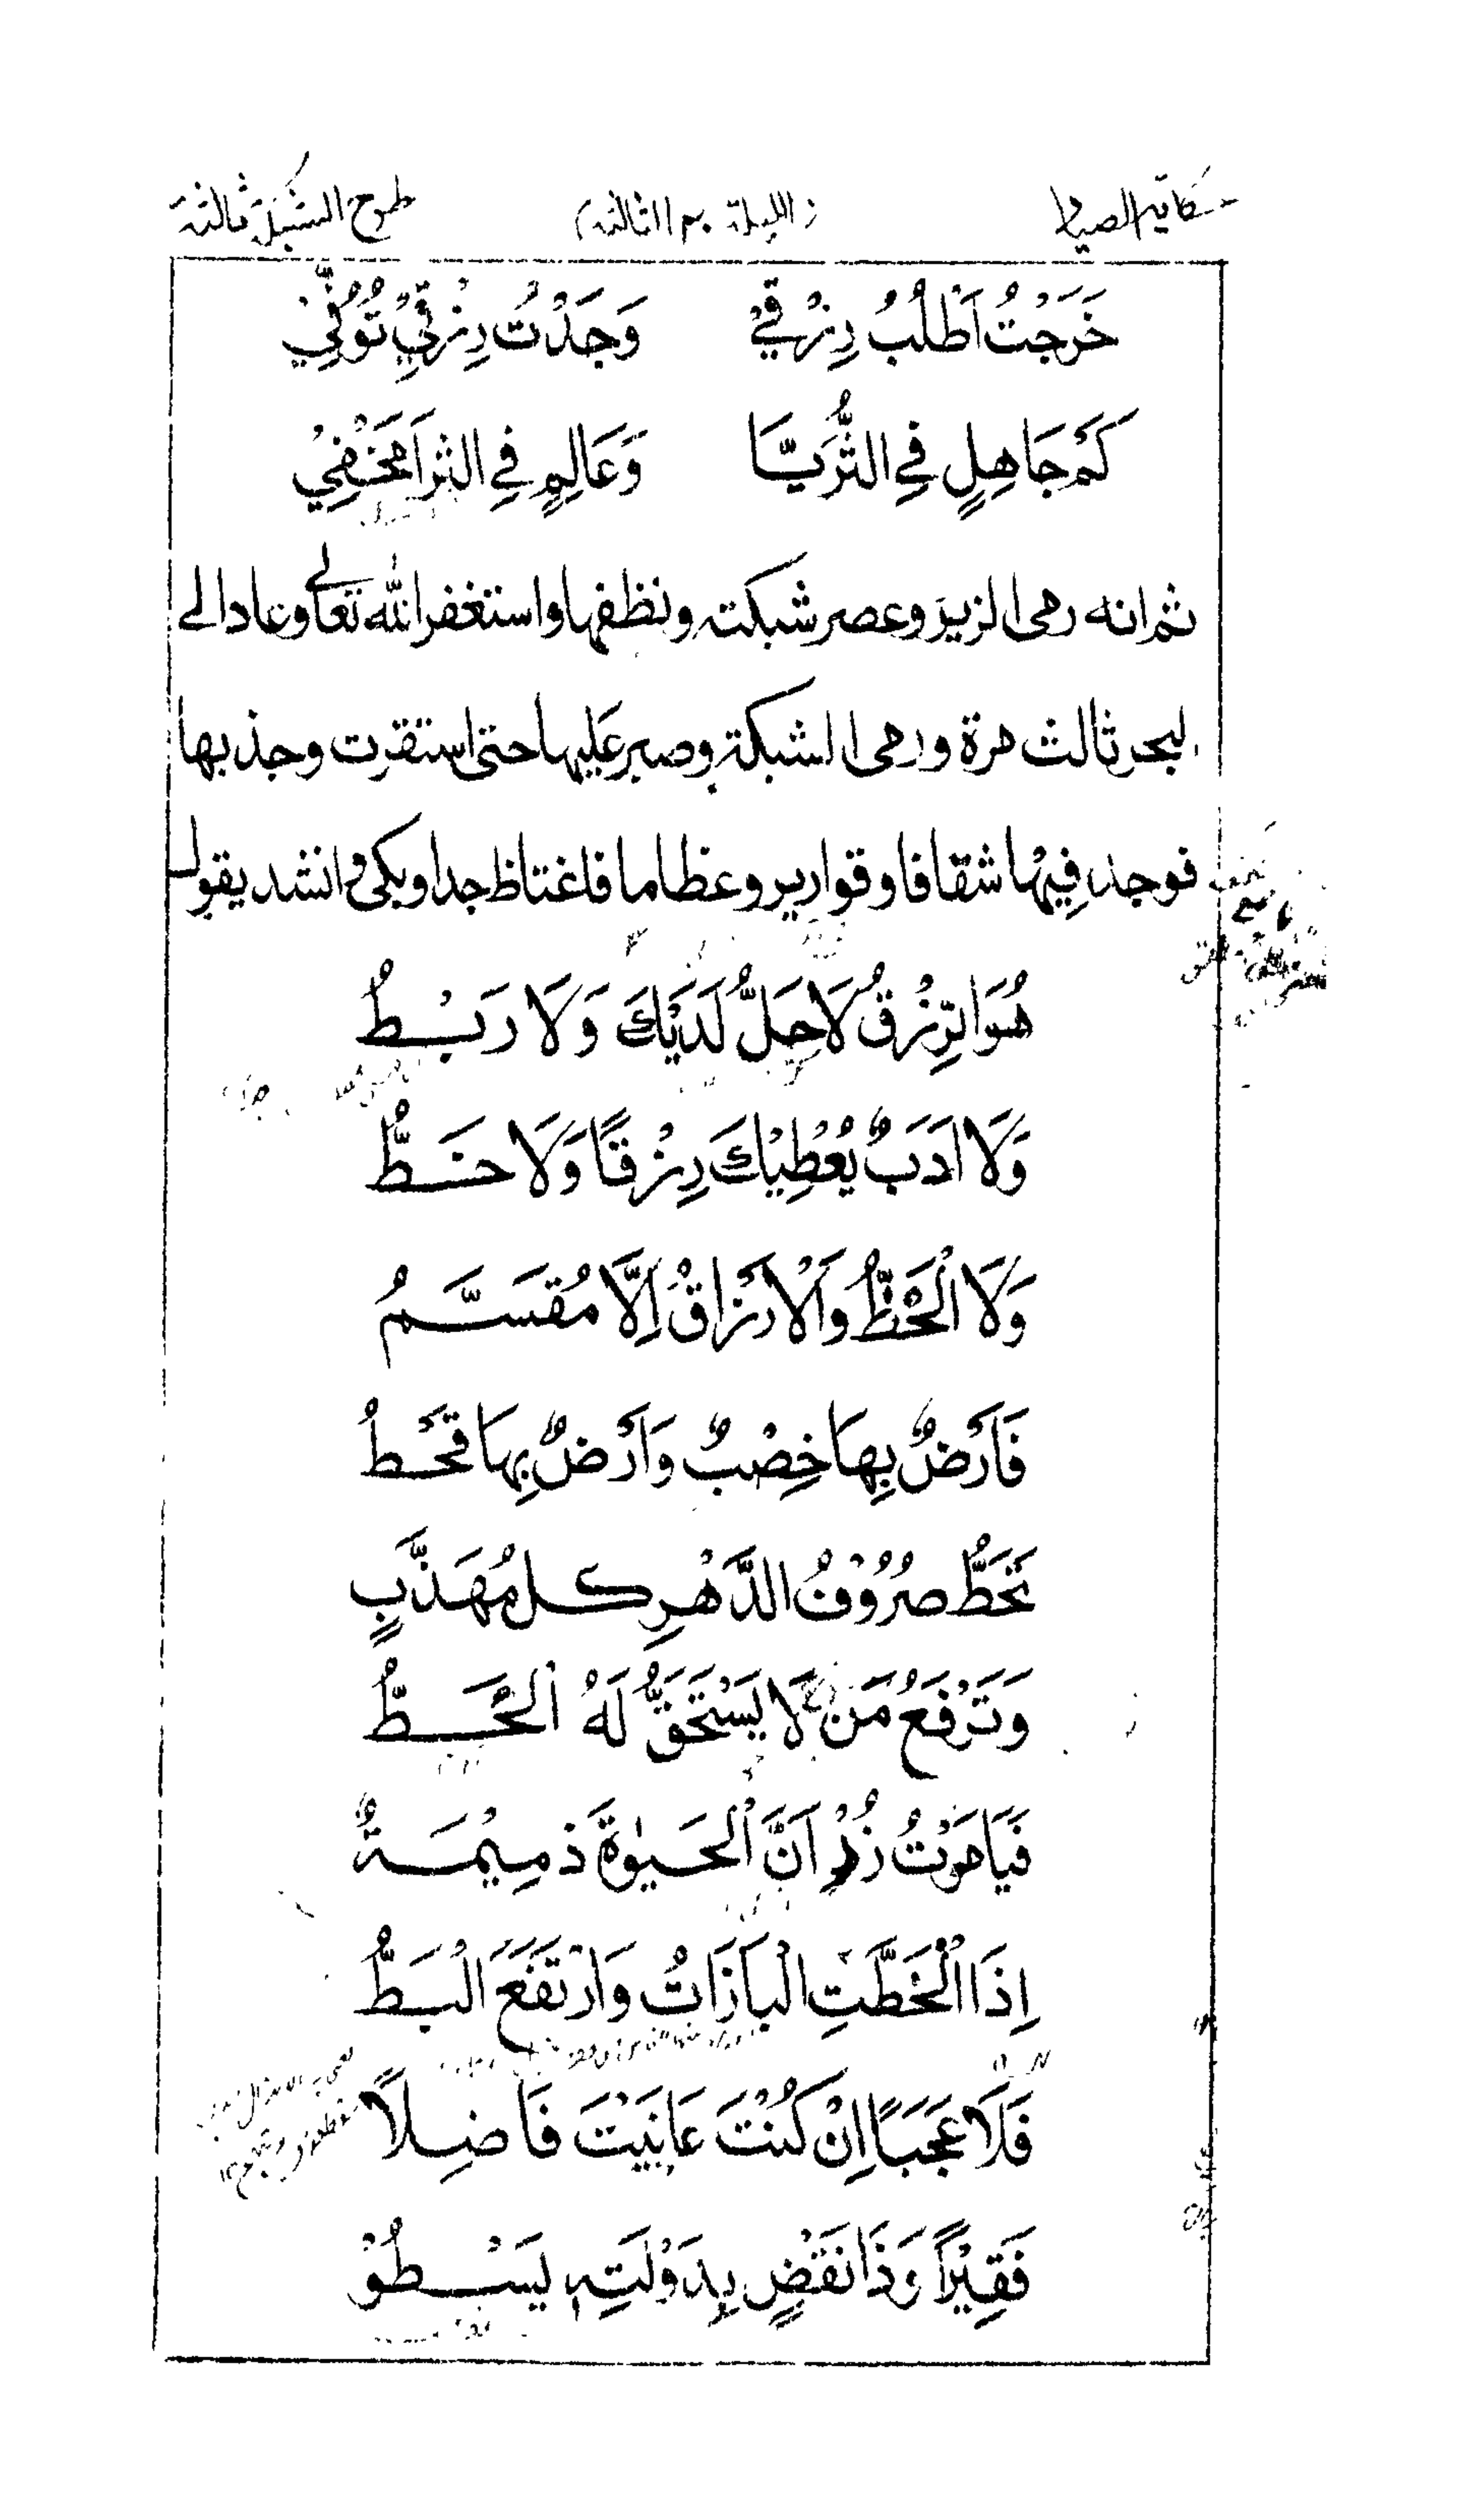 حكاية الصياد (الليلة ٣ الثالثة) طرح الشبكة ثالثة
خَرَجْتُ اَطْلُبُ رِزْقِيْ وَجَدْتُ رِزْقِيْ تُوُفِّيْ
كَمْ جَاهِلٍ فِي الثُّرَيَّا وَعَالِمٍ فِي الثرَا مَخْفِيْ
ثم انه رمى الزير وعصر شبكته ونظفها واستغفر الله تعالى وعاد الى
البحر ثالث مرة ورمى الشبكة وصبر عَليها حتى استقرت وجذبها
فوجد فِيْها شقافا وقوارير وعظاما فاغتاظ جدا وبكى وانشد يقول
هُوَ الرِّزْقُ لَا حَلٌّ لَدَيْكَ وَلَا رَبْطُ
وَلَا اَدَبٌ يُعْطِيْكَ رِزْقًا وَلَا خَطُّ
وَلَا الْحَظُّ وَالْاَرْزَاقُ اِلَّا مُقَسَّمُ
فَأَرْضٌ بِهَا خِصْبٌ وَاَرْضٌ بِهَا قَحْطُ
تَحَطُّ صُرُوْفُ الدَّهْرِ كل مُهَذَّبٍ
وَتَرْفَعُ مَنْ لَا يَسْتَحَقُّ لَهُ الْحَطُّ
فَيَا مَوْتُ زُرْ اِنَّ الْحَيٰوةَ ذمِيْمَةٌ
اِذَا انْحَطَّتِ الْبَازَاتُ وَارْتَفَعَ الْبَطُّ
فَلَا عَجَبًا اِنْ كُنْتَ عَايَنْتَ فَاضِلًا
فَقِيْرًا وَذَا نَقْضٍ بِدَوْلَتِهٖ يَسْطُوْ